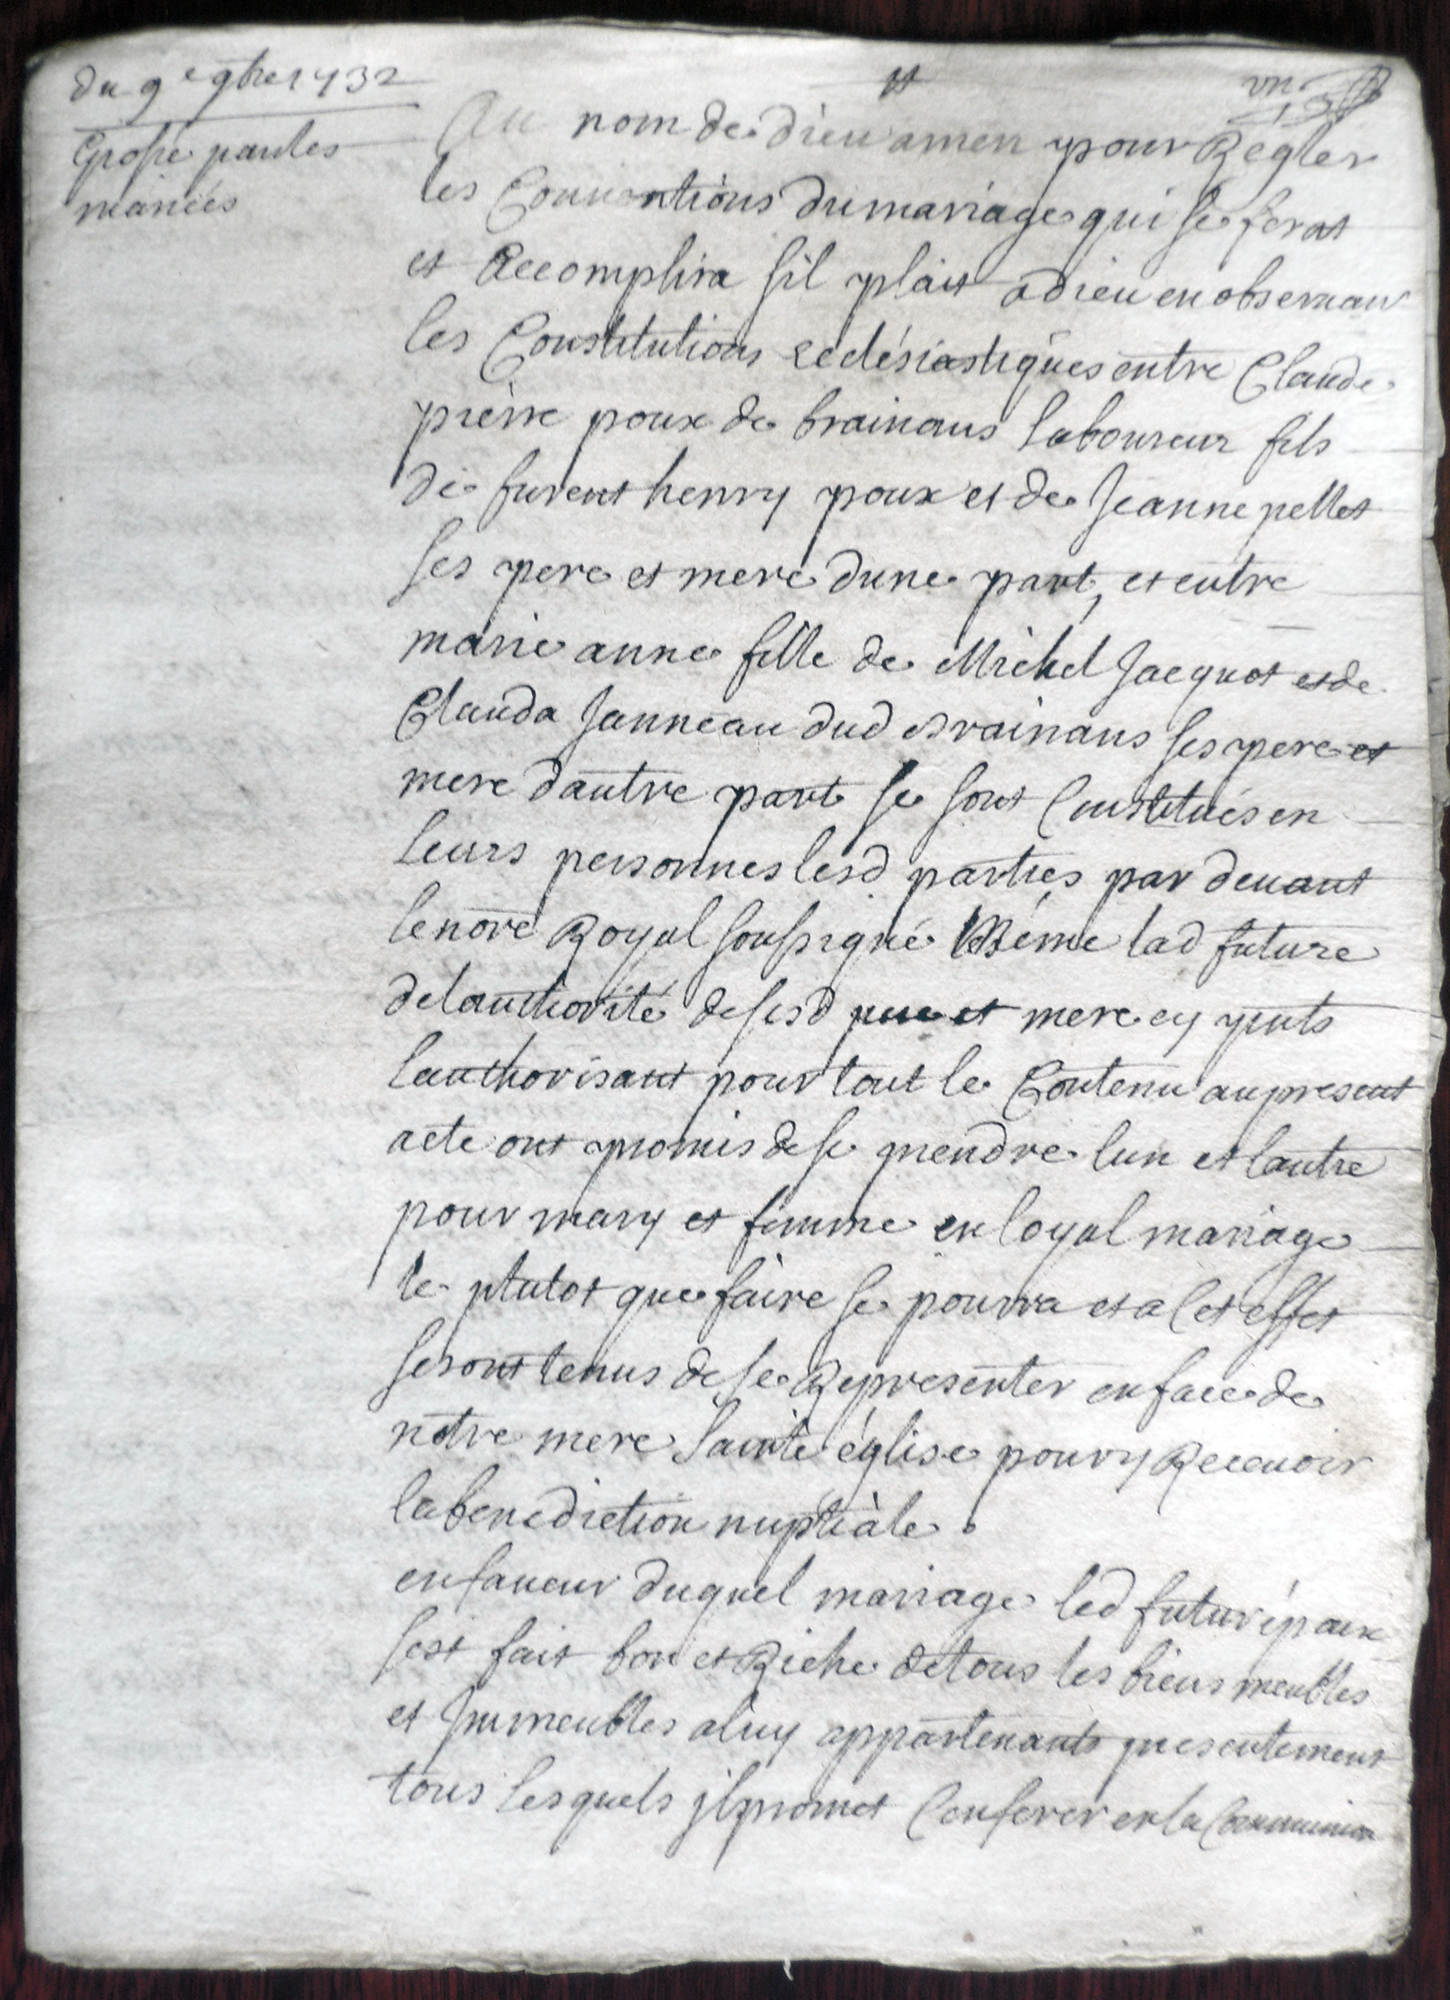 du 9e 9bre 1732
Grosse pour les
mariés
Au nom de dieu amen pour Regler
les Conventions du mariage qui se ferat
et Accomplira sil plait a dieu en observant
les Constitutions Ecclésiastiques entre Claude
pierre poux de brainans laboureur fils
de furent henry poux et de Jeanne pellet
ses pere et mere dune part, et entre
marie anne fille de Michel Jacquot et de
Clauda Janneau dud Brainans ses pere et
mere dautre part se sont Constitués en
leurs personnes lesd parties par devant
le nore Royal soussigné Même lad future
de lauthorité de sesd pere et mere cy pnts
lauthorisant pour tout le Contenu au present
acte ont promis de se prendre lun et lautre
pour mary et femme en loyal mariage
le plutot que faire se pourra et a Cet effet
seront tenus de se Representer en face de
notre mere Sainte église pour y Recevoir
la benediction nuptiale.
en faveur duquel mariage led futur époux
sest fait bon et Riche de tous les biens meubles
et Jmmeubles a luy appartenants presentement
tous lesquels jl promet Conferer en la Communion